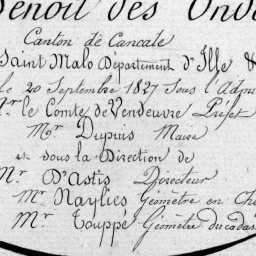 Benoit des Ond
Canton de Cancale
Saint Malo Département d'Ille &
le 20 Septembre 1827 Sous l'Admi
Mr. le Comte de Vendeuvre Préfet
Mr Dupuis Maire
et sous la Direction de
Mr. D'Astis Directeur
Mr. Naylies Géomètre en Ch
Mr. Touppé Géomètre du cadas